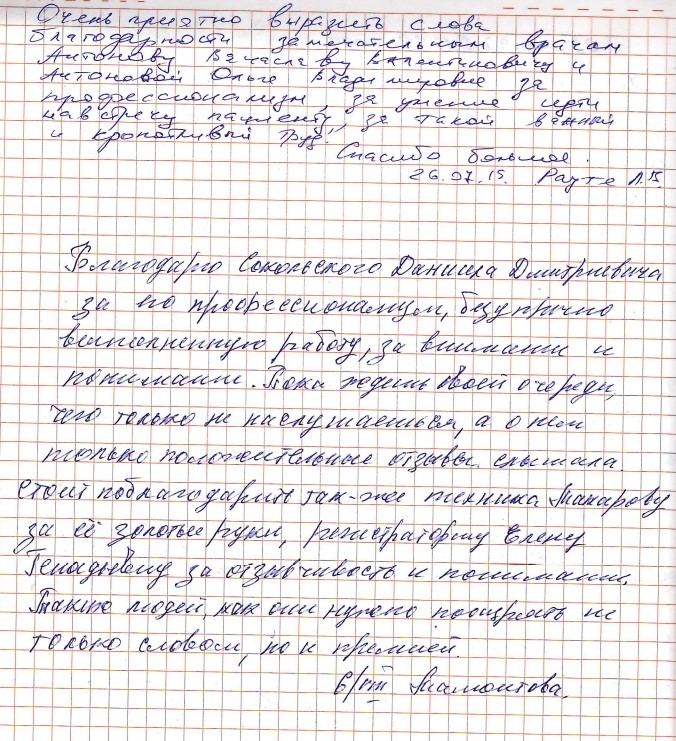 Очень приятно выразить слова
благодарности замечательным врачам
Антонову Вячеславу Валентиновичу и
Антоновой Ольге Владимировне за
профессионализм, за умение идти
навстречу пациенту, за такой важный
и кропотливый труд.
Спасибо большое.
26.07.15. Рауте Л.В.
Благодарю Сокольского Даниила Дмитриевича
за его профессионализм, безупречно
выполненную работу, за внимание и
понимание. Пока ждешь своей очереди,
чего только не наслушаешься, а о нем
только положительные отзывы слышала.
Стоит поблагодарить так-же техника Макарову
за её золотые руки, регистраторшу Елену
Генадьевну за отзывчивость и понимание.
Таких людей, как они нужно поощрять не
только словом, но и премией.
6/VIII Мамонтова.